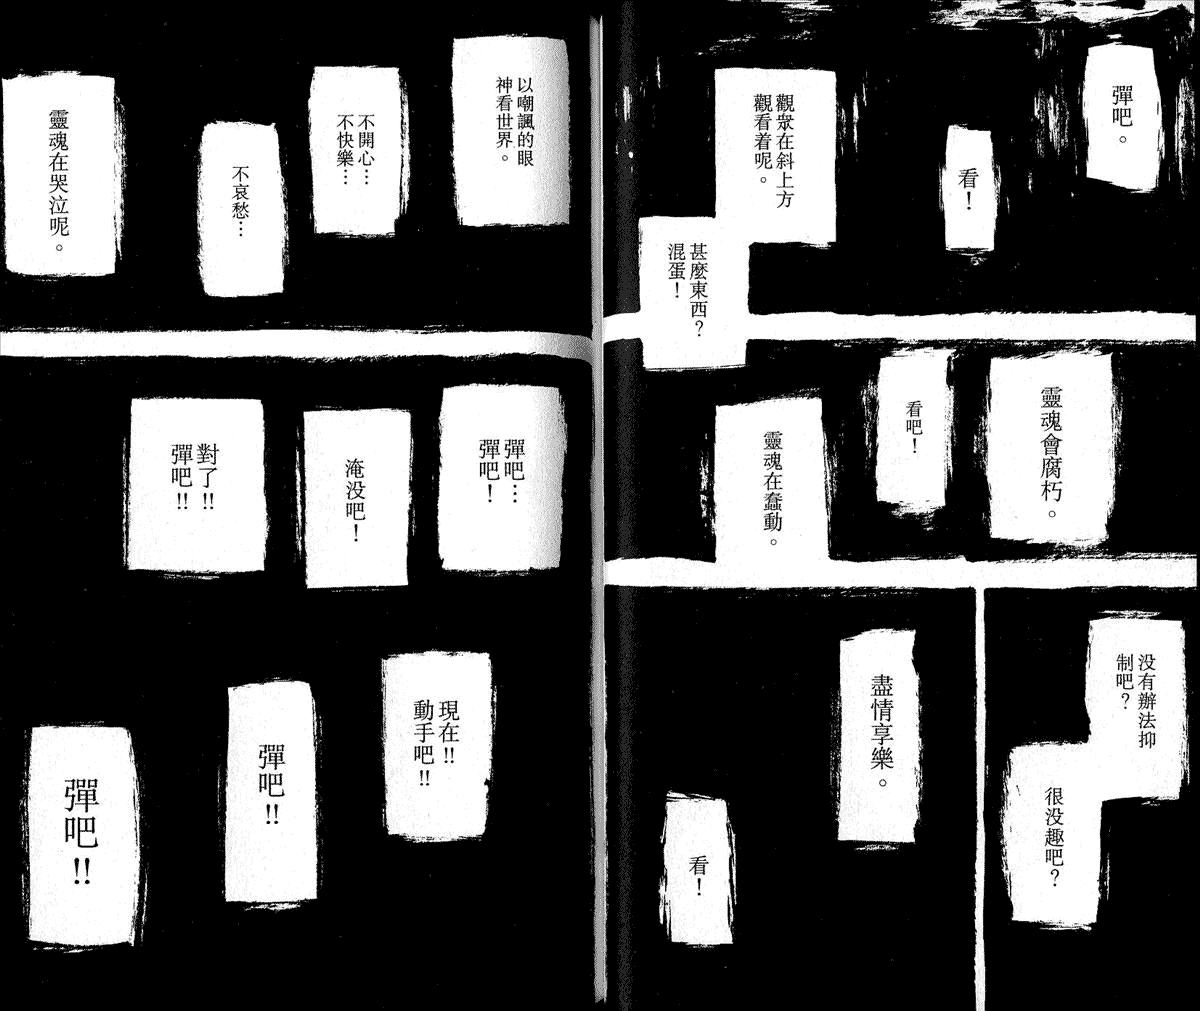 彈吧。
看！
觀眾在斜上方
觀看着呢。
甚麼東西？
混蛋！
靈魂會腐朽。
看吧！
靈魂在蠢動。
没有辦法抑
制吧？
很没趣吧？
盡情享樂。
看！
以嘲諷的眼
神看世界。
不開心…
不快樂…
不哀愁…
靈魂在哭泣呢。
彈吧…
彈吧！
淹没吧！
對了!!
彈吧!!
現在!!
動手吧!!
彈吧!!
彈吧!!